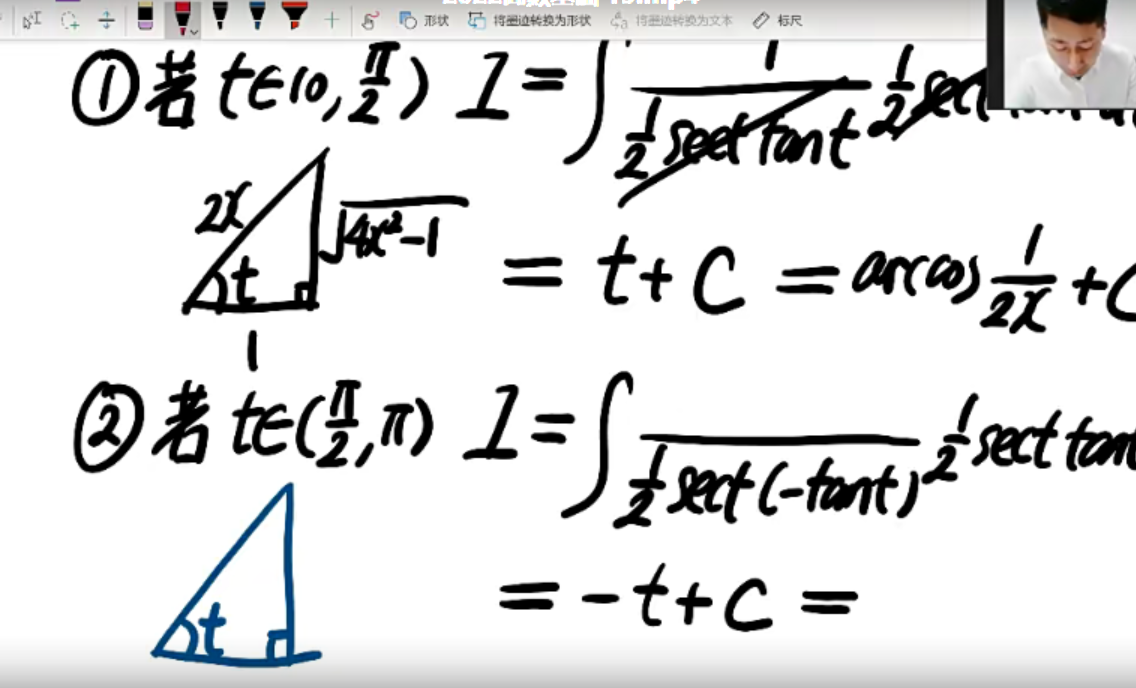 形状 将墨迹转换为形状 将墨迹转换为文本 标尺
① 若 t∈(0, π/2) I = ∫ 1/(1/2 sect tant) 1/2 sect
2x t √(4x²-1)
1
= t + C = arccos 1/2x + C
② 若 t∈(π/2, π) I = ∫ 1/2 sect (-tant) 1/2 sect tant
t
= -t + C =